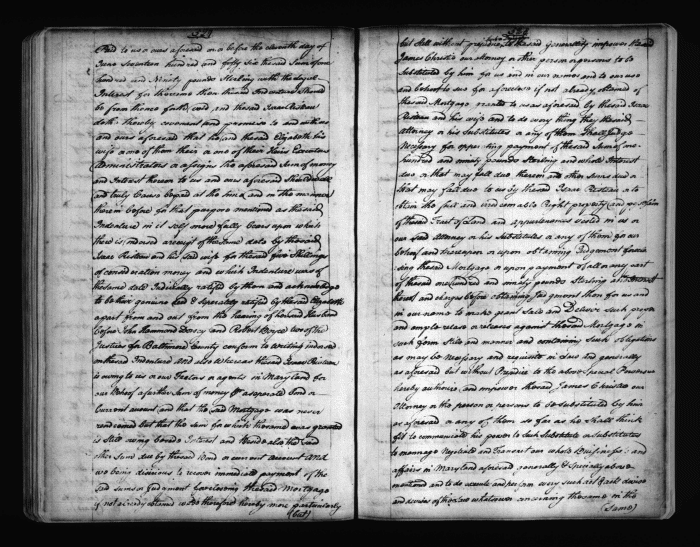 Paid to us or ours aforesaid on or before the eleventh day of
June Seventeen hundred and forty Six the said Sum of one
hundred and Ninety pounds Sterling with the legal
Interest for the same then the said Indenture should
be from thence forth void and the said Isaac Risteau
doth thereby covenant and promise to and with us
and ours aforesaid that he and the said Elizabeth his
wife or one of them their or one of their Heirs Executors
Administrators or assigns the aforesaid Sum of money
and Interest thereon to us and ours aforesaid Should well
and truly Cause to be paid at the time and in the manner
therein before for that purpose mentioned as the said
Indenture in it self more fully bears upon which
there is indorsed a receipt of the same date by the said
Isaac Risteau and his said wife for the said five Shillings
of consideration money and which Indenture was of
the same date Judicially ratified by them and acknowledged
to be their genuine deed & Specially ratified by the said Elizabeth
apart from and out from the hearing of her said Husband
before John Hammond Dorsey and Robert Boyce two of the
Justices for Baltimore County conform to writing indorsed
on the said Indenture And also whereas the said Isaac Risteau
is owing to us or our Factors or agents in Maryland for
our Behoof a further Sum of money & a separate Bond or
Current account and that the said Mortgage was never
renounced but that the Sum for which the same was granted
is Still owing besides Interest and Besides also the said
other Sum due by the said Bond or current account And
we being desirous to recover immediate payment of the
said Sums or Judgment foreclosing the said Mortgage
if not already obtained we do therefore hereby more particularly
(but)
but Still without prejudice to the said generality impower the said
James Christie our attorney or other person or persons to be
Substituted by him for us and in our names and to our use
and behoof to sue for aforesaid if not already obtained of
the said Mortgage granted to us as aforesaid by the said Isaac
Risteau and his wife and to do every thing they the said
Attorney or his Substitutes or any of them Shall judge
Necessary for operating payment of the said Sum of one
hundred and ninety pounds Sterling and whole Interest
due or that may fall due thereon and other Sums due or
that may fall due to us by the said Isaac Risteau or to
obtain the full and irredeemable Right property and possession
of the said Tract of Land and appurtenances vested in us or
our said Attorney or his Substitutes or any of them for our
behoof and thereupon or upon obtaining Judgement foreclo
sing the said Mortgage or upon payment of all or any part
of the said one hundred and ninety pounds Sterling and Interest
thereof and charges before obtaining Judgment then for us and
in our name to make grant Seal and Deliver such proper
and ample release or releases against the said Mortgage in
such form Stile and manner and containing Such obligations
as may be Necessary and requisite in Law And generally
as aforesaid but without Prejudice to the above special Premisses
hereby authorize and impower the said James Christie our
Attorney or the person or persons to be substituted by him
as aforesaid or any of them so far as he Shall think
fit to communicate his power to Such Substitute or Substitutes
to manage Negotiate and Transact our whole Business and
affairs in Maryland aforesaid generally & Specially above
mentioned and to do execute and perform every such act & acts device
and devices of the Law whatsoever concerning the same in the
(Same)